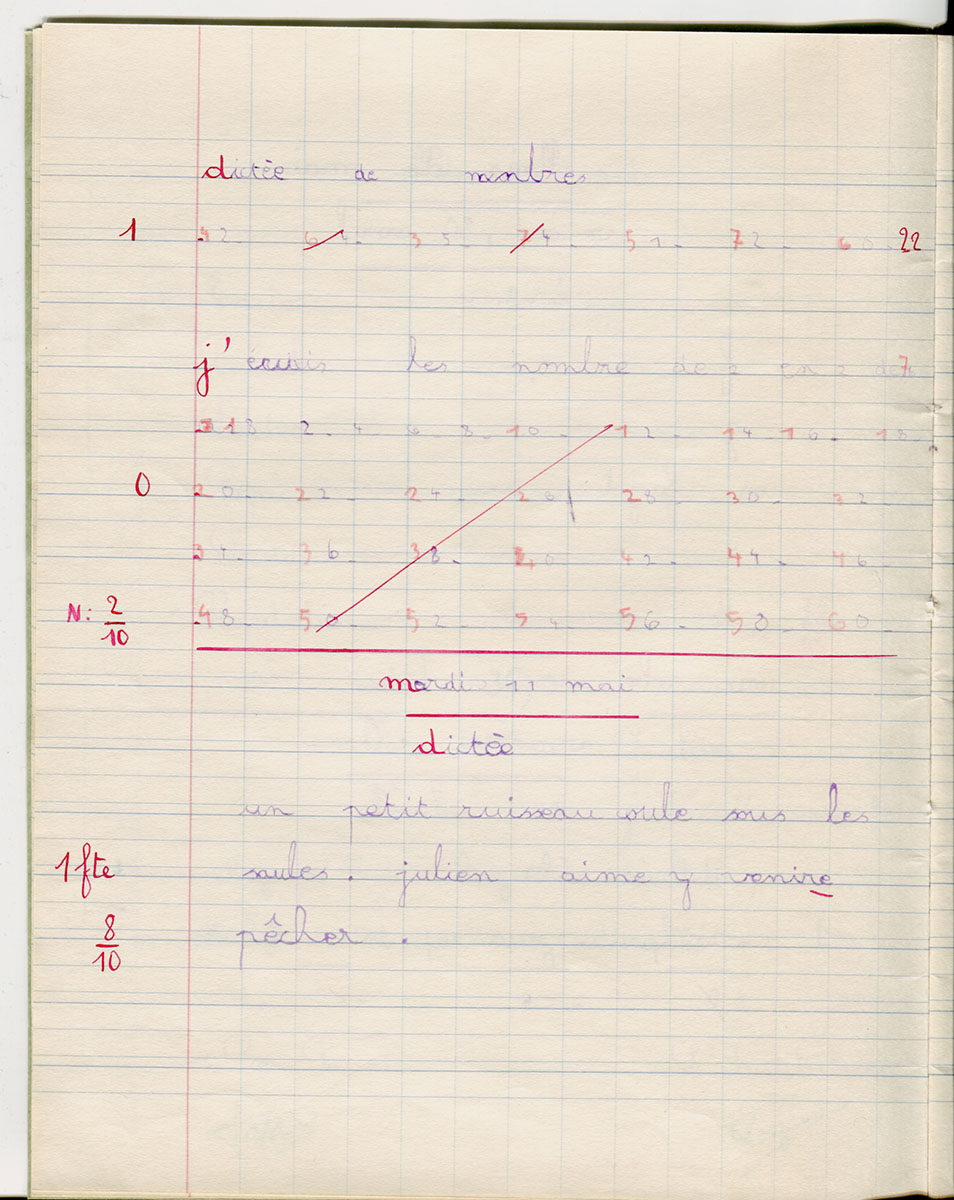 dictèe de nonbres
1 42 - 64 - 35 - 74 - 51 - 72 - 60 - 22
j' écuis les nombre de 2 en 2 de 7
18 2 - 4 6 - 8 - 10 - 12 - 14 - 16 - 18
0 20 - 22 - 24 - 26 28 - 30 - 32
34 - 36 38 - 40 42 - 44 - 46
N: 2/10 48 - 50 - 52 - 54 - 56 - 58 - 60 -
mardi 11 mai
dictèe
un petit ruisseau coule sous les
1 fte saules . julien aime y venire
8/10 pêcher .